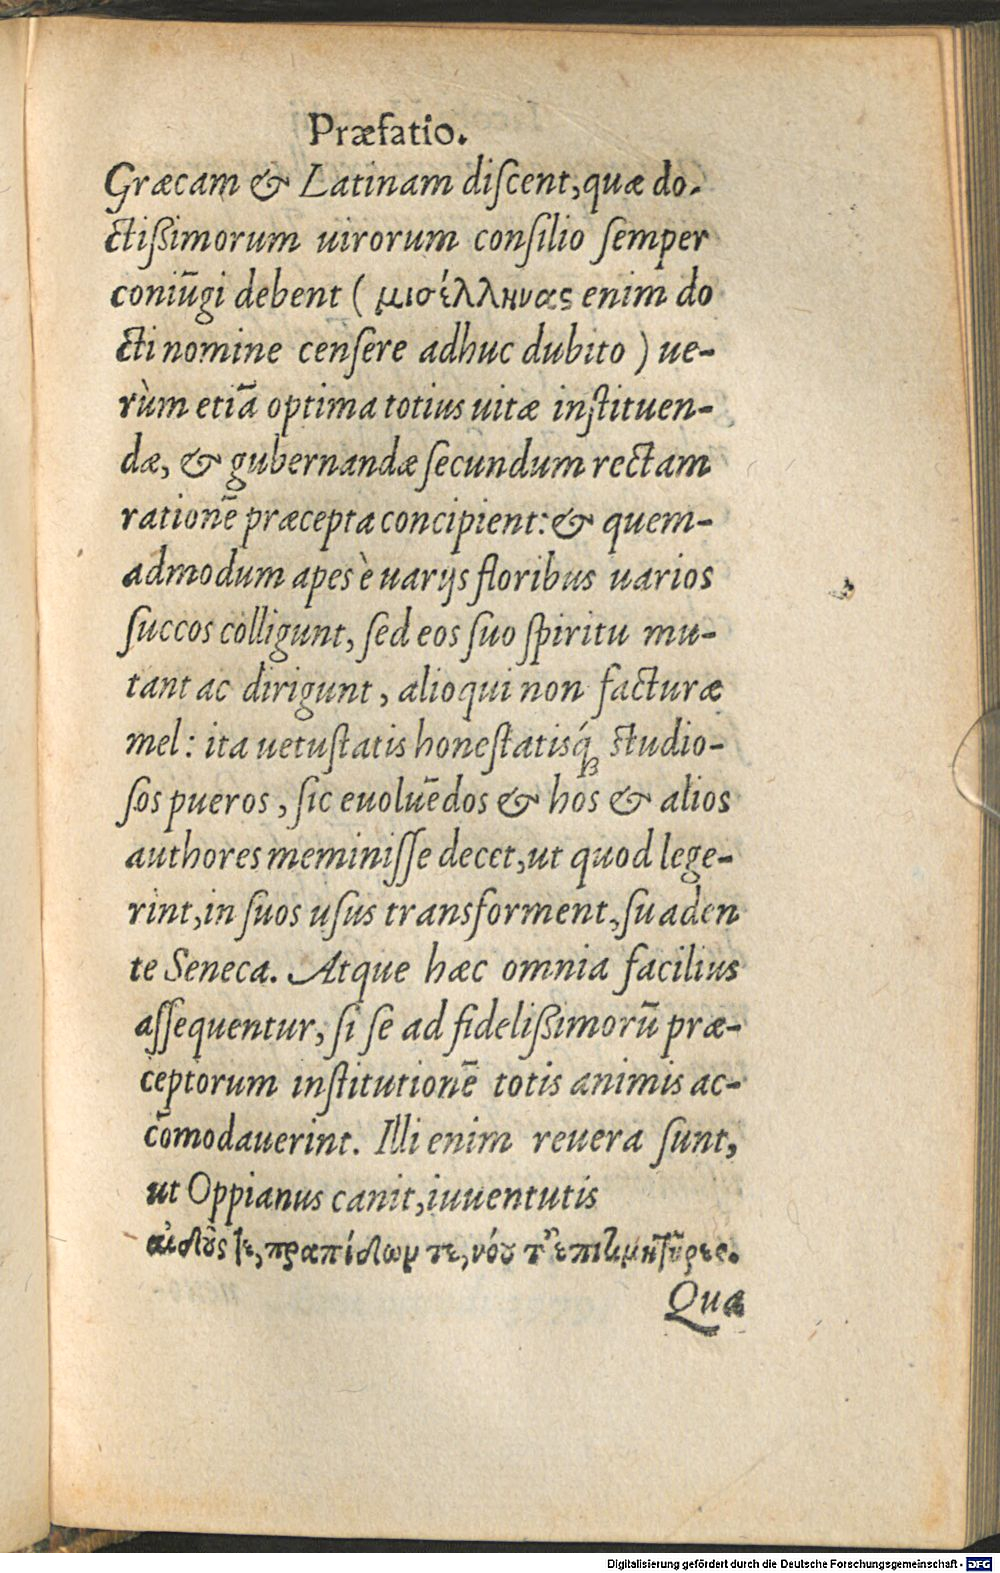 Præfatio.
Græcam & Latinam diſcent, quæ do-
ctiſsimorum uirorum conſilio ſemper
coniũgi debent ( μισέλληνας enim do
cti nomine cenſere adhuc dubito ) ue-
rùm etiã optima totius uitæ inſtituen-
dæ, & gubernandæ ſecundum rectam
rationẽ præcepta concipient: & quem-
admodum apes è uarijs floribus uarios
ſuccos colligunt, ſed eos ſuo ſpiritu mu-
tant ac dirigunt, alioqui non facturæ
mel: ita uetuſtatis honeſtatisq́; ſtudio-
ſos pueros, ſic euoluẽdos & hos & alios
authores meminiſſe decet, ut quod lege-
rint, in ſuos uſus transforment, ſuaden
te Seneca. Atque hæc omnia facilius
aſſequentur, ſi ſe ad fideliſsimorũ præ-
ceptorum inſtitutionẽ totis animis ac-
cõmodauerint. Illi enim reuera ſunt,
ut Oppianus canit, iuuentutis
αἰδοῦς τε, πραπίδων τε, νόου τ' ἐπιτιμητῆρες.
Qua
Digitalisierung gefördert durch die Deutsche Forschungsgemeinschaft - DFG